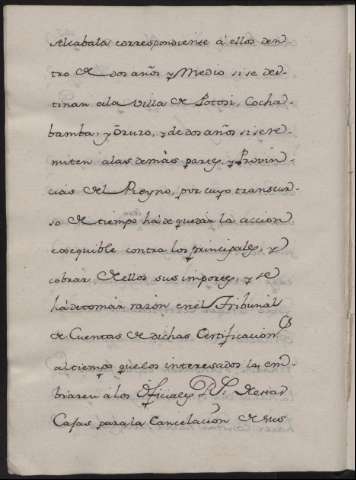 Alcabala correspondiente á ellos den
tro de dos años y Medio si se des-
tinan a la Villa de Potosi, Cocha-
bamba, y Oruro, y de dos años si se re-
miten a las demás partes, y Provin
cias del Reyno, por cuyo transcur-
so de tiempo há de quedar la accion
exequible contra los principales, y
cobrar de ellos sus importes, y se
há de tomar razón en el Tribunal
de Cuentas de dichas Certificacion.s
al tiempo que los interesados las em-
biaren á los Oficiales R.s de estas
Cajas para la Cancelacion de sus